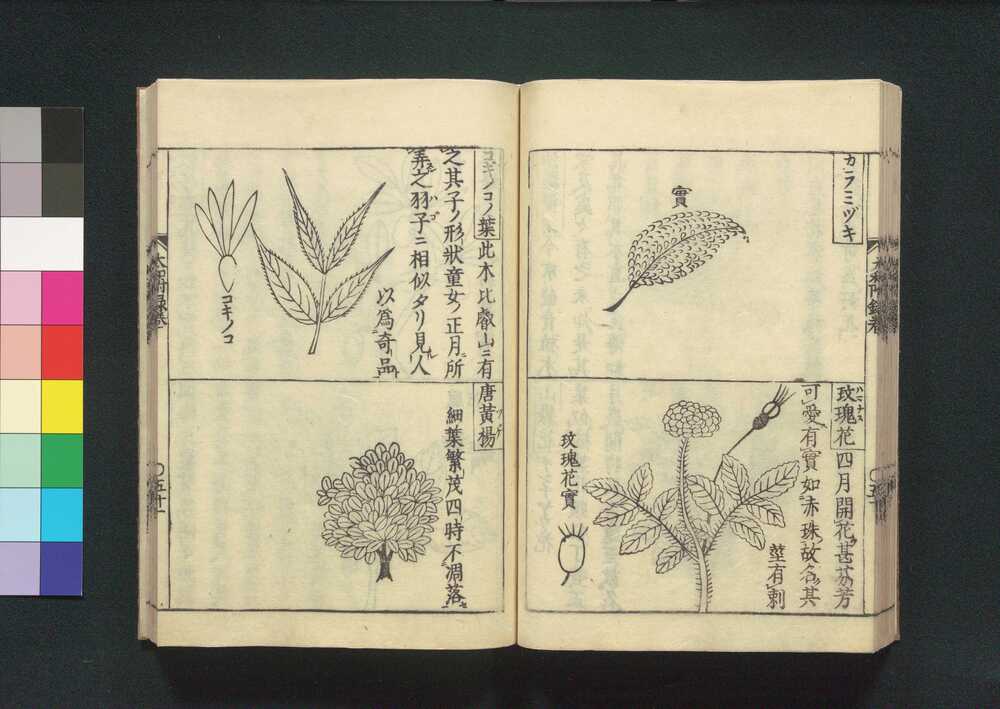 カラミヅキ
實
玫瑰花 四月開花甚芬芳
ハマナス
可愛有實如赤珠故名其
莖有刺
玫瑰花實
コキノコノ葉 此木比叡山ニ有
之其子ノ形狀童女ノ正月所
弄之羽子ニ相似タリ見人
ハゴ
以爲奇品
コキノコ
唐黃楊
ツゲ
細葉繁茂四時不凋落
五十一